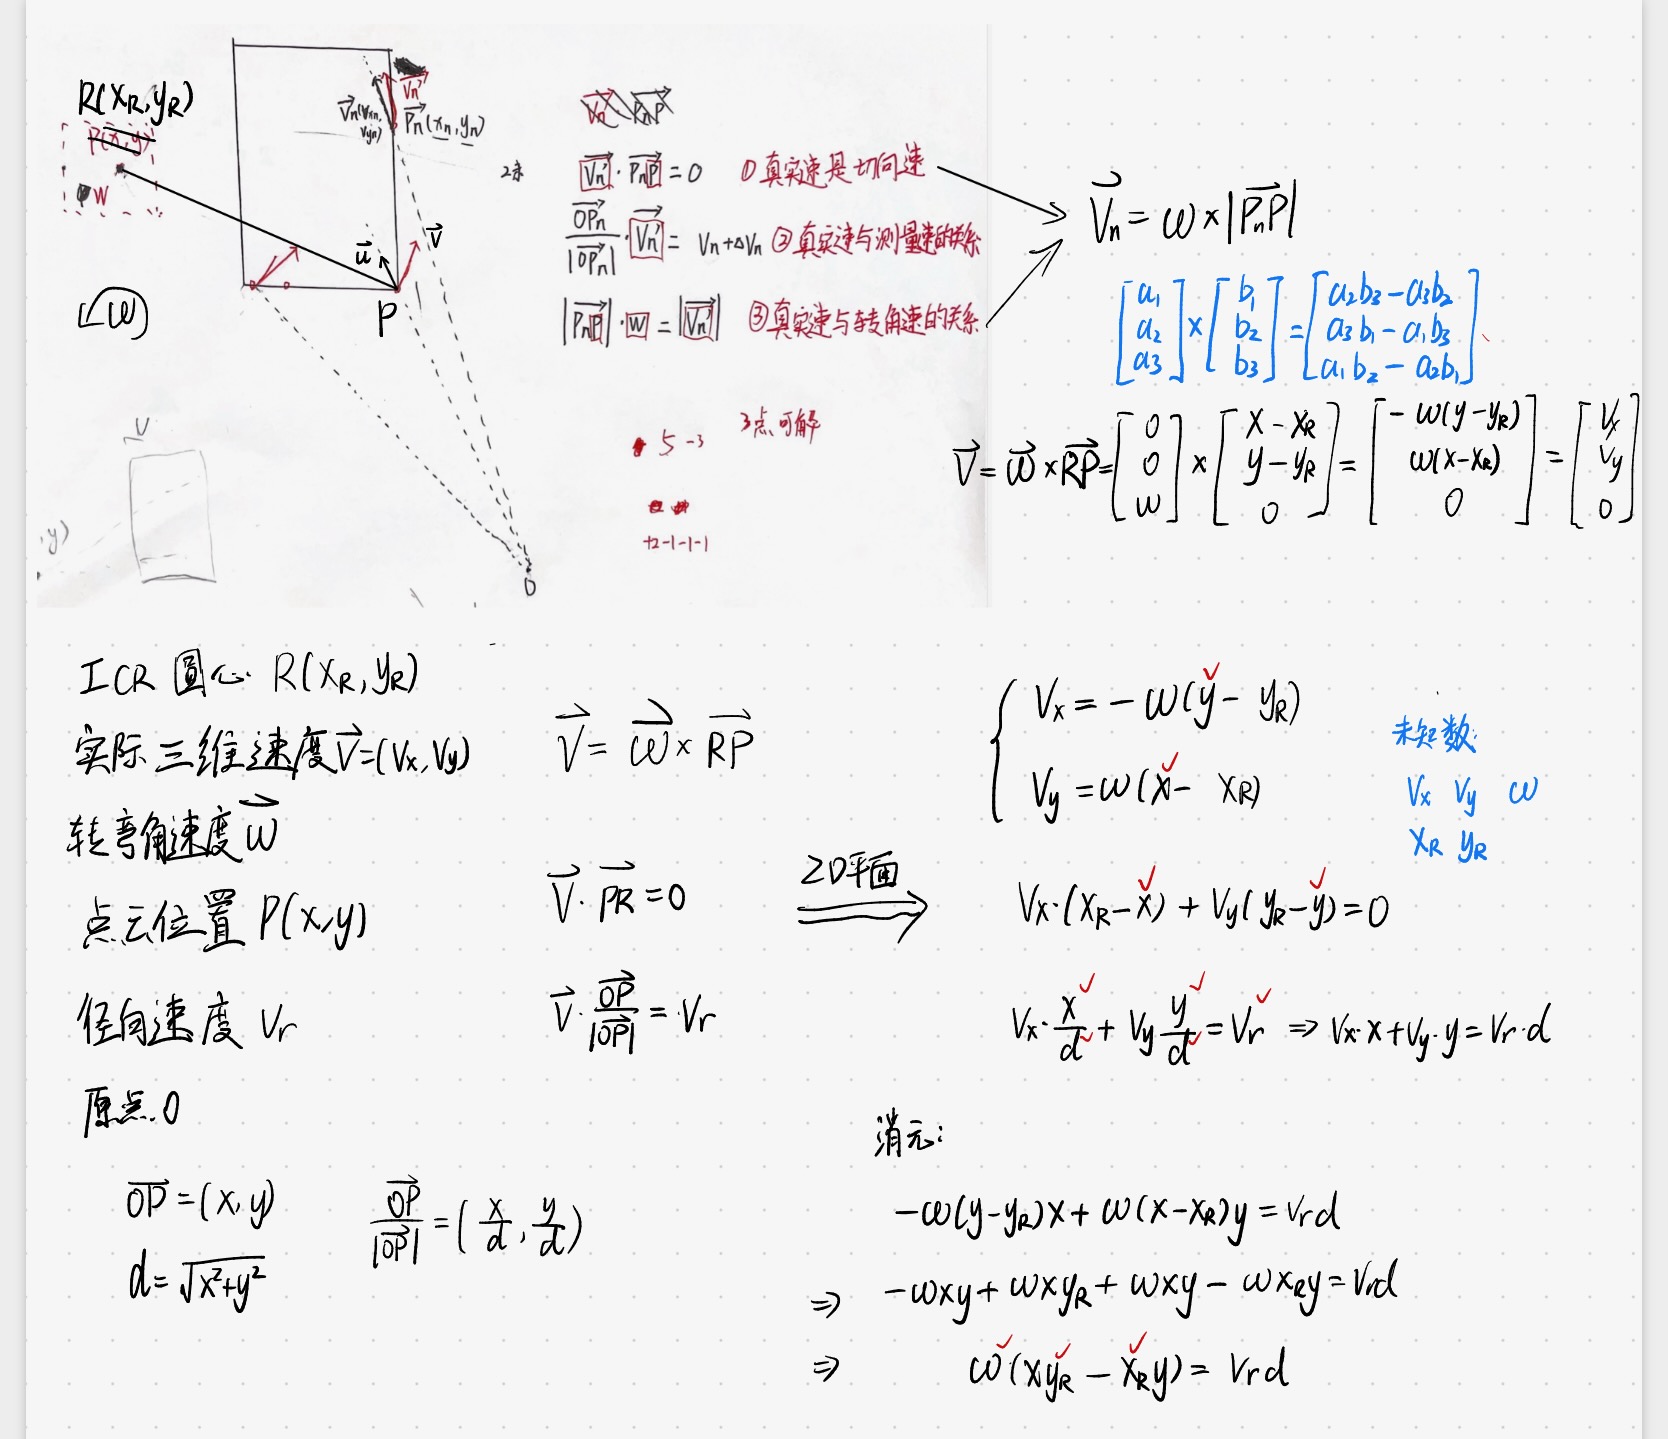 R(x_R, y_R)
P(x, y)
W
∠W
V⃗n(Vxn, Vyn)
V⃗n'
P⃗n(xn, yn)
2米
u⃗
V⃗
P
O
V
, y)
V⃗n' · P⃗nP
V⃗n' · P⃗nP = 0 ①真实速是切向速
OP⃗n/|OP⃗n| · V⃗n' = Vn+ΔVn ②真实速与测量速的关系
|P⃗nP| · W = |V⃗n'| ③真实速与转角速的关系
3点可解
5 -3
+2-1-1-1
V⃗n = ω × |P⃗nP|
[a1 a2 a3] × [b1 b2 b3] = [a2b3-a3b2 a3b1-a1b3 a1b2-a2b1]
V⃗ = ω⃗ × RP⃗ = [0 0 ω] × [x-x_R y-y_R 0] = [-ω(y-y_R) ω(x-x_R) 0] = [Vx Vy 0]
ICR 圆心 R(x_R, y_R)
实际三维速度V⃗=(Vx, Vy)
转弯角速度ω⃗
点云位置 P(x, y)
径向速度 Vr
原点 O
OP⃗=(x, y)
d=√x²+y²
OP⃗/|OP⃗| = (x/d, y/d)
V⃗ = ω⃗ × RP⃗
V⃗ · PR⃗ = 0
V⃗ · OP⃗/|OP⃗| = Vr
2D平面
Vx = -ω(y - y_R)
Vy = ω(x - x_R)
未知数:
Vx Vy ω
x_R y_R
Vx·(x_R-x) + Vy(y_R-y) = 0
Vx·x/d + Vy·y/d = Vr ⇒ Vx·x+Vy·y=Vr·d
消元:
-ω(y-y_R)x + ω(x-x_R)y = Vrd
⇒ -ωxy + ωxy_R + ωxy - ωx_Ry = Vrd
⇒ ω(xy_R - x_Ry) = Vrd